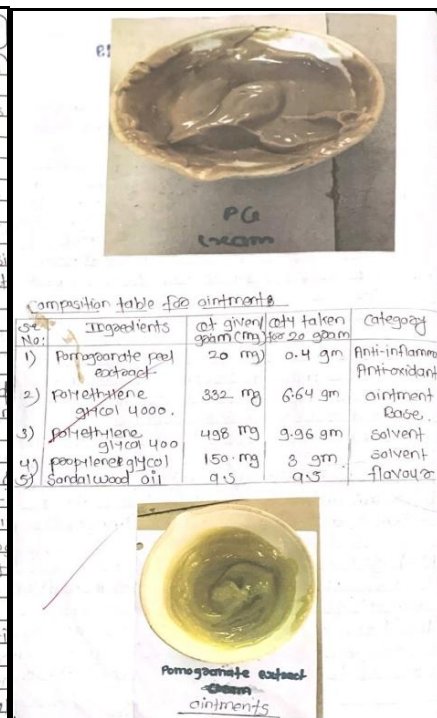 PG
cream
Composition table for ointments
Sr. No: Ingredients qt given/ gram (mg) qty taken for 20 gram category
1) Pomogranate peel extract 20 mg) 0.4 gm Anti-inflamm Anti-oxidant
2) Polyethylene glycol 4000. 332 mg 6.64 gm ointment Base.
3) Polyethylene glycol 400 498 mg 9.96 gm solvent
4) propylene glycol 150.mg 3 gm. solvent
5) Sandalwood oil q.s q.s flavour
Pomogranate extract
ointments